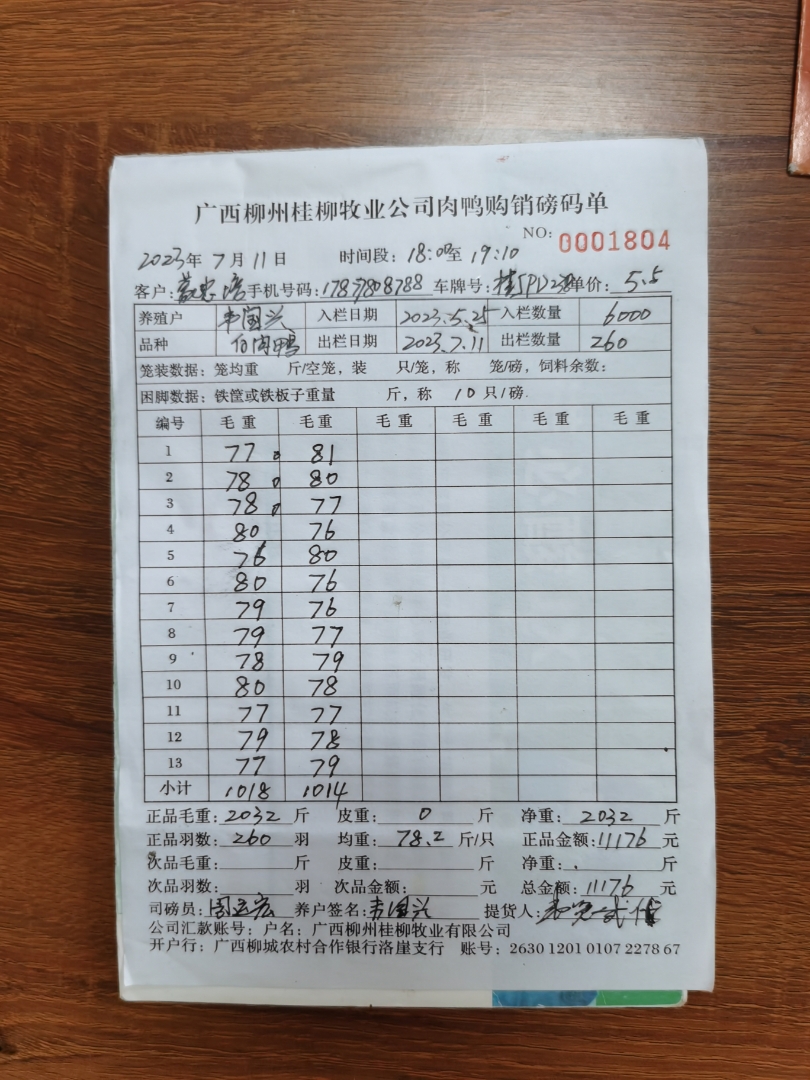 广西柳州桂柳牧业公司肉鸭购销磅码单
NO: 0001804
2023年 7月 11日 时间段: 18:00至 19:10
客户: 手机号码: 车牌号: 单价: 5.5
养殖户 韦国兴 入栏日期 2023.5.25 入栏数量 6000
品种 白肉鸭 出栏日期 2023.7.11 出栏数量 260
笼装数据: 笼均重 斤/空笼, 装 只/笼, 称 笼/磅, 饲料余数:
困脚数据: 铁筐或铁板子重量 斤, 称 10 只/磅.
编号 毛重 毛重 毛重 毛重 毛重 毛重
1 77 81
2 78 80
3 78 77
4 80 76
5 76 80
6 80 76
7 79 76
8 79 77
9 78 79
10 80 78
11 77 77
12 79 78
13 77 79
小计 1018 1014
正品毛重: 2032 斤 皮重: 0 斤 净重: 2032 斤
正品羽数: 260 羽 均重: 78.2 斤/只 正品金额: 11176 元
次品毛重: 斤 皮重: 斤 净重: 斤
次品羽数: 羽 次品金额: 元 总金额: 11176 元
司磅员: 周运宏 养户签名: 韦国兴 提货人:
公司汇款账号: 户名: 广西柳州桂柳牧业有限公司
开户行: 广西柳城农村合作银行洛崖支行 账号: 2630 1201 0107 2278 67